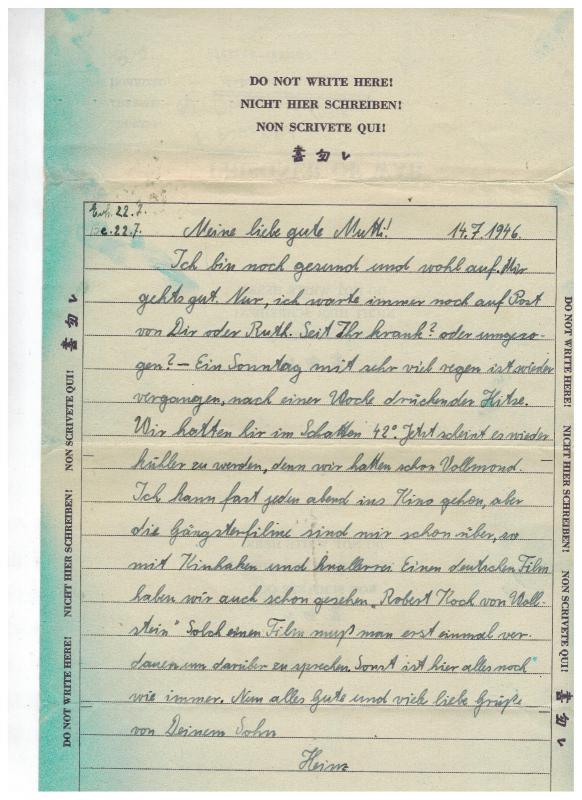 DO NOT WRITE HERE!
NICHT HIER SCHREIBEN!
NON SCRIVETE QUI!
Erh. 22.7.
e. 22.7.
Meine liebe gute Mutti! 14.7.1946.
Ich bin noch gesund und wohl auf. Mir
gehts gut. Nur, ich warte immer noch auf Post
von Dir oder Ruth. Seit Ihr krank? oder umgezo-
gen? – Ein Sonntag mit sehr viel regen ist wieder
vergangen, nach einer Woche drückender Hitze.
Wir hatten hir im Schatten 42°. Jetzt scheint es wieder
kühler zu werden, denn wir hatten schon Vollmond.
Ich kann fast jeden abend ins Kino gehen, aber
die Gängsterfilme sind mir schon über, so
mit Kinhaken und knallerei Einen deutschen Film
haben wir auch schon gesehen „Robert Koch von Woll-
stein" Solch einen Film muß man erst einmal ver-
dauen um darüber zu sprechen. Sonst ist hier alles noch
wie immer. Nun alles Gute und viele liebe Grüße
von Deinem Sohn
Heinz
DO NOT WRITE HERE! NICHT HIER SCHREIBEN! NON SCRIVETE QUI!
DO NOT WRITE HERE! NICHT HIER SCHREIBEN! NON SCRIVETE QUI!